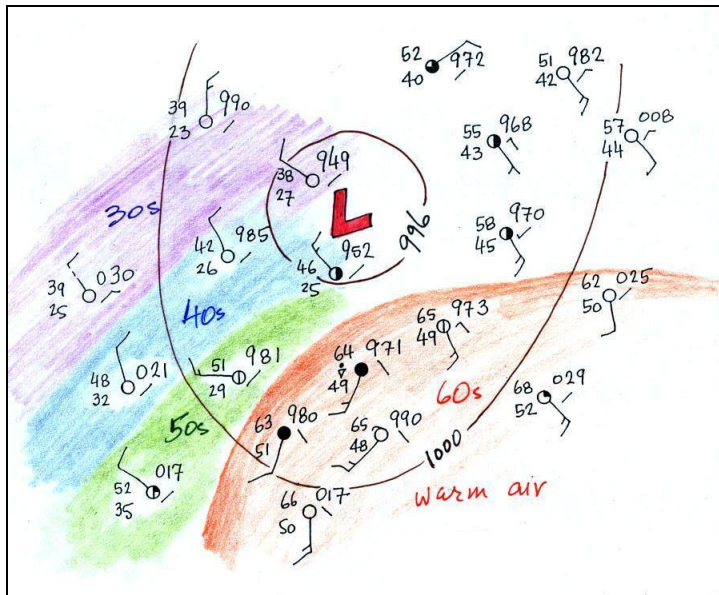 52 972
40
51 982
42
39 990
23
55 968
43
57 008
44
38 949
27
30s
L
996
58 970
45
42 985
26
46 952
25
39 030
25
62 025
50
40s
65 973
49
48 021
32
51 981
29
64 971
49
60s
68 029
52
50s
63 980
51
65 990
48
1000
52 017
35
66 017
50
warm air